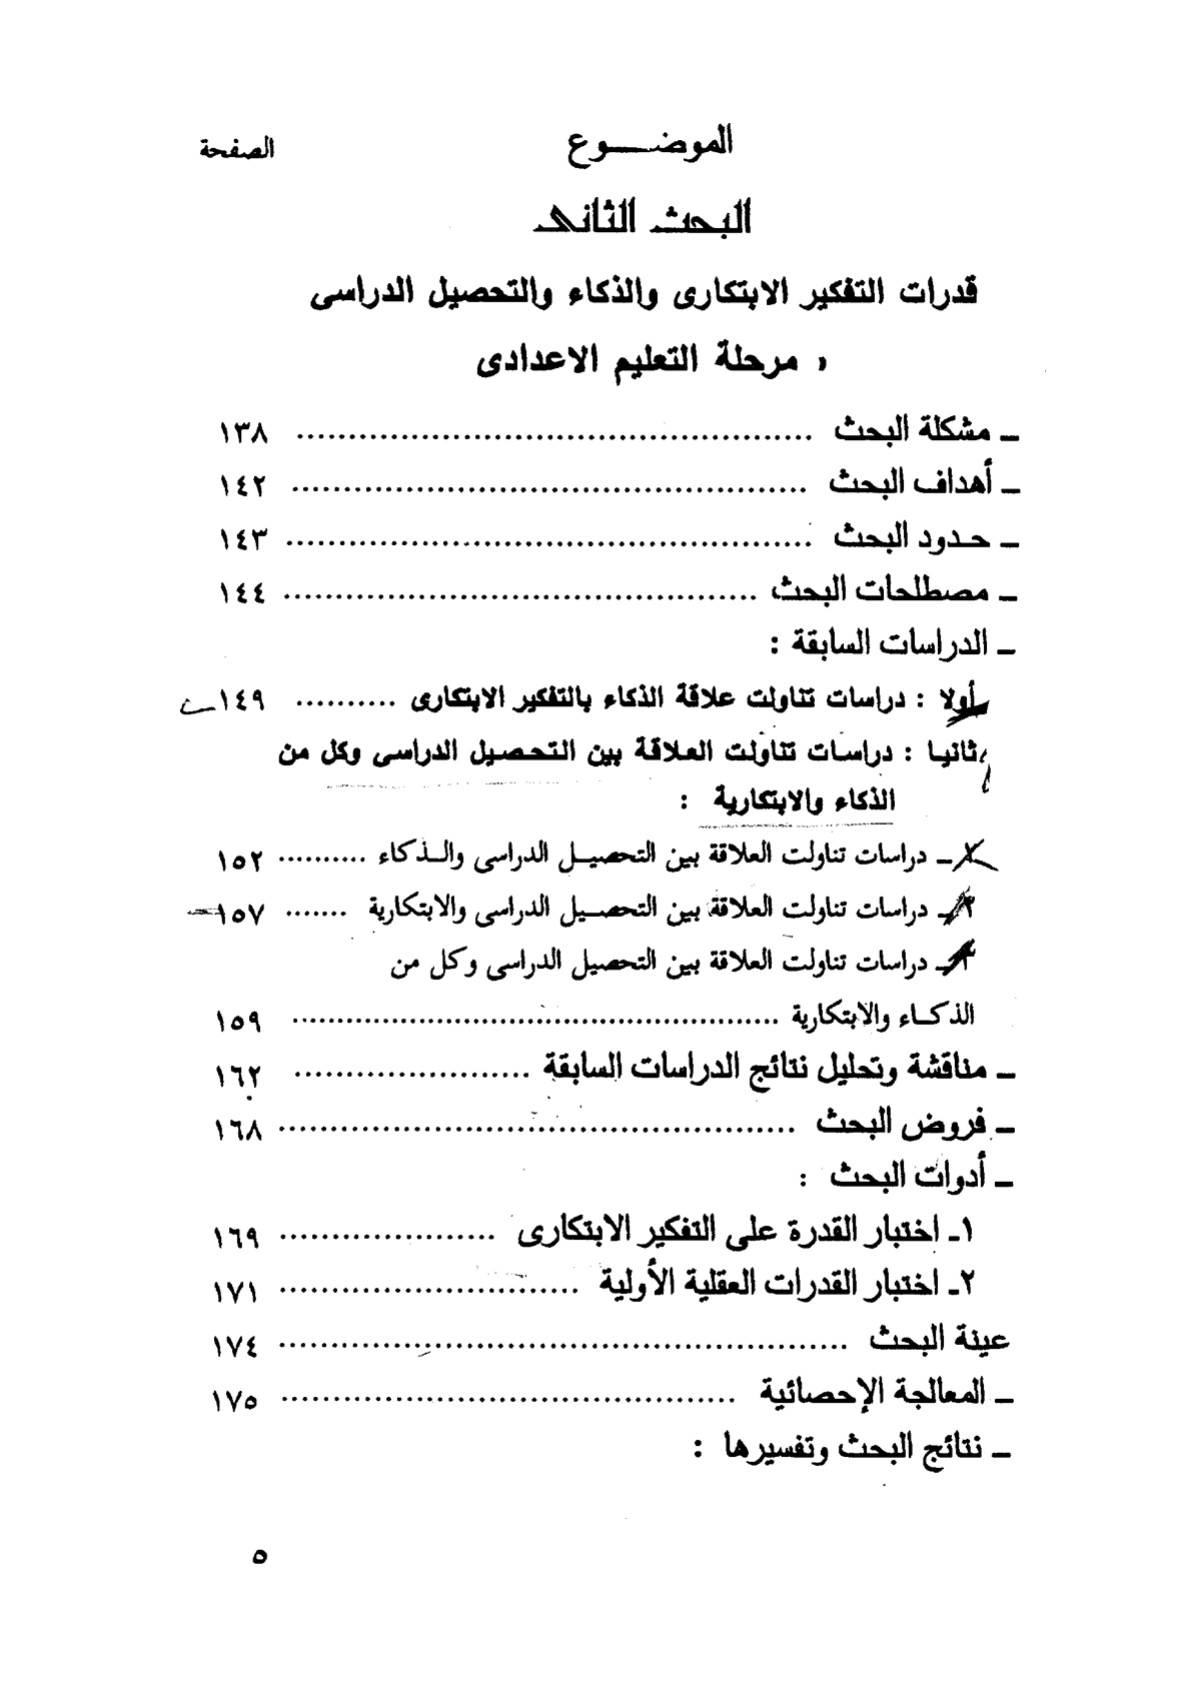 الموضـــوع الصفحة
البحث الثانى
قدرات التفكير الابتكارى والذكاء والتحصيل الدراسى
، مرحلة التعليم الاعدادى
ــ مشكلة البحث .................................................. ١٣٨
ــ أهداف البحث .................................................. ١٤٢
ــ حدود البحث .................................................. ١٤٣
ــ مصطلحات البحث .............................................. ١٤٤
ــ الدراسات السابقة :
أولا : دراسات تناولت علاقة الذكاء بالتفكير الابتكارى .......... ١٤٩
ثانيا : دراسات تناولت العلاقة بين التحصيل الدراسى وكل من
الذكاء والابتكارية :
ــ دراسات تناولت العلاقة بين التحصيل الدراسى والذكاء .......... ١٥٢
٢ــ دراسات تناولت العلاقة بين التحصيل الدراسى والابتكارية ....... ١٥٧
٣ــ دراسات تناولت العلاقة بين التحصيل الدراسى وكل من
الذكاء والابتكارية .................................................. ١٥٩
ــ مناقشة وتحليل نتائج الدراسات السابقة ....................... ١٦٢
ــ فروض البحث .................................................. ١٦٨
ــ أدوات البحث :
١ــ اختبار القدرة على التفكير الابتكارى ..................... ١٦٩
٢ــ اختبار القدرات العقلية الأولية ............................. ١٧١
عينة البحث ....................................................... ١٧٤
ــ المعالجة الإحصائية ............................................ ١٧٥
ــ نتائج البحث وتفسيرها :
٥